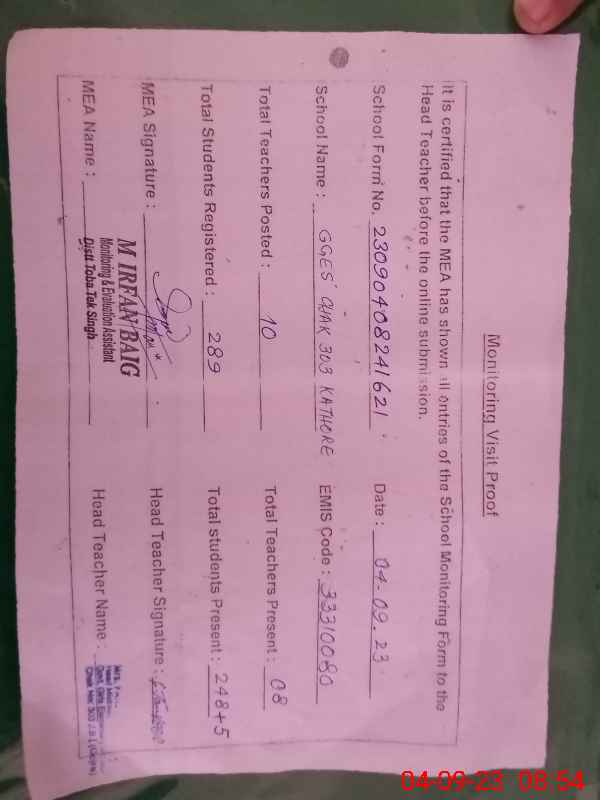 Monitoring Visit Proof
It is certified that the MEA has shown all entries of the School Monitoring Form to the
Head Teacher before the online submission.
School Form No. 23090408241621 Date : 04-09.23
School Name : GGES CHAK 303 KATHORE EMIS Code : 33310080
Total Teachers Posted : 10 Total Teachers Present : 08
Total Students Registered : 289 Total students Present : 248+5
MEA Signature : Head Teacher Signature :
M IRFAN BAIG
Monitoring & Evaluation Assistant
Distt Toba Tek Singh
MEA Name : Head Teacher Name :
04-09-23 08:54